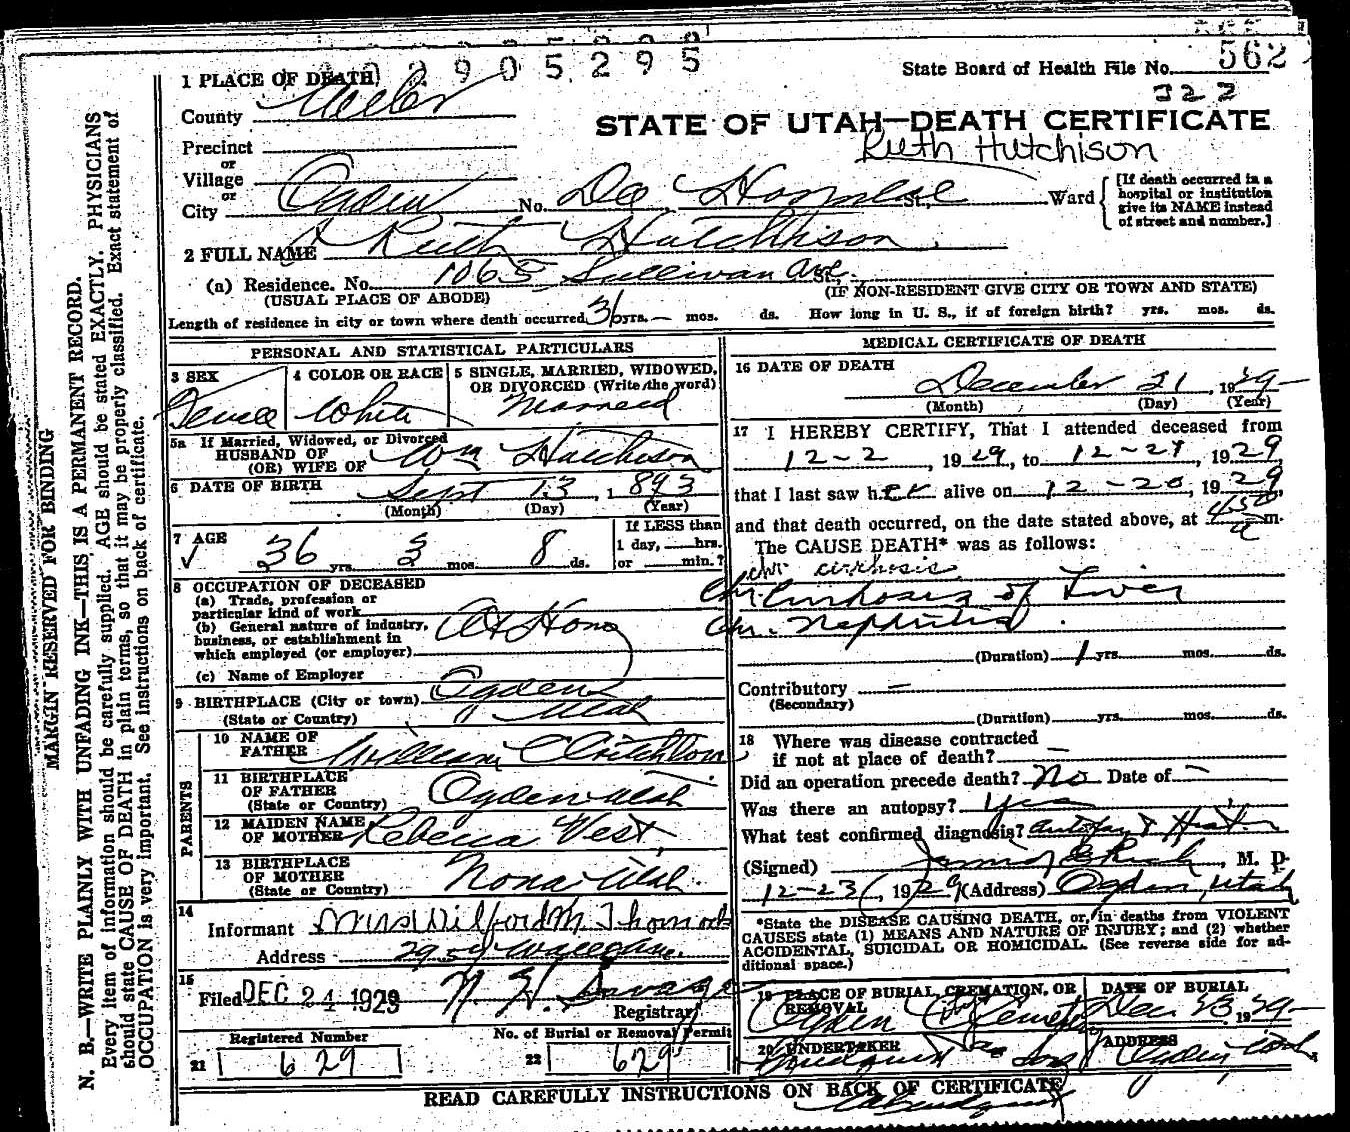 2905295
State Board of Health File No. 562
322
1 PLACE OF DEATH
County Weber
STATE OF UTAH—DEATH CERTIFICATE
Ruth Hutchison
Precinct
or
Village
or
City Ogden No. Dee Hospital St., Ward
[If death occurred in a hospital or institution give its NAME instead of street and number.]
2 FULL NAME Ruth Hutchison
(a) Residence. No. 1065 Sullivan Ave. St.,
(USUAL PLACE OF ABODE) (IF NON-RESIDENT GIVE CITY OR TOWN AND STATE)
Length of residence in city or town where death occurred 36 yrs. — mos. ds. How long in U. S., if of foreign birth? yrs. mos. ds.
PERSONAL AND STATISTICAL PARTICULARS
3 SEX 4 COLOR OR RACE 5 SINGLE, MARRIED, WIDOWED, OR DIVORCED (Write the word)
Female White Married
5a If Married, Widowed, or Divorced
HUSBAND OF
(OR) WIFE OF Wm Hutchison
6 DATE OF BIRTH Sept 13, 1893
(Month) (Day) (Year)
7 AGE 36 yrs. 3 mos. 8 ds.
If LESS than
1 day, hrs.
or min.?
8 OCCUPATION OF DECEASED
(a) Trade, profession or
particular kind of work
(b) General nature of industry,
business, or establishment in
which employed (or employer)
At Home
(c) Name of Employer
9 BIRTHPLACE (City or town) Ogden
(State or Country) Utah
PARENTS
10 NAME OF
FATHER William Critchlow
11 BIRTHPLACE
OF FATHER
(State or Country) Ogden Utah
12 MAIDEN NAME
OF MOTHER Rebecca West
13 BIRTHPLACE
OF MOTHER
(State or Country) Utah
14
Informant Mrs Wilford M.
Address
15
Filed DEC 24 1929
Registrar
Registered Number No. of Burial or Removal Permit
21 629 22 629
MEDICAL CERTIFICATE OF DEATH
16 DATE OF DEATH
December 21 1929
(Month) (Day) (Year)
17 I HEREBY CERTIFY, That I attended deceased from
12-2, 1929, to 12-21, 1929
that I last saw her alive on 12-20, 1929,
and that death occurred, on the date stated above, at 450 a m.
The CAUSE DEATH* was as follows:
chr cirrhosis
Chr. Cirrhosis of Liver
Chr. Nephritis
(Duration) 1 yrs. mos. ds.
Contributory —
(Secondary)
(Duration) yrs. mos. ds.
18 Where was disease contracted
if not at place of death? —
Did an operation precede death? No Date of —
Was there an autopsy? Yes
What test confirmed diagnosis? Autopsy &
(Signed) Rich, M. D.
12-23, 1929 (Address) Ogden, Utah
*State the DISEASE CAUSING DEATH, or, in deaths from VIOLENT
CAUSES state (1) MEANS AND NATURE OF INJURY; and (2) whether
ACCIDENTAL, SUICIDAL OR HOMICIDAL. (See reverse side for ad-
ditional space.)
19 PLACE OF BURIAL, CREMATION, OR REMOVAL DATE OF BURIAL
Ogden City Cemetery Dec 23 1929
20 UNDERTAKER ADDRESS
Lindquist and Sons Ogden Utah
READ CAREFULLY INSTRUCTIONS ON BACK OF CERTIFICATE
MARGIN RESERVED FOR BINDING
N. B.—WRITE PLAINLY WITH UNFADING INK—THIS IS A PERMANENT RECORD.
Every item of information should be carefully supplied. AGE should be stated EXACTLY. PHYSICIANS
should state CAUSE OF DEATH in plain terms, so that it may be properly classified. Exact statement of
OCCUPATION is very important. See instructions on back of certificate.